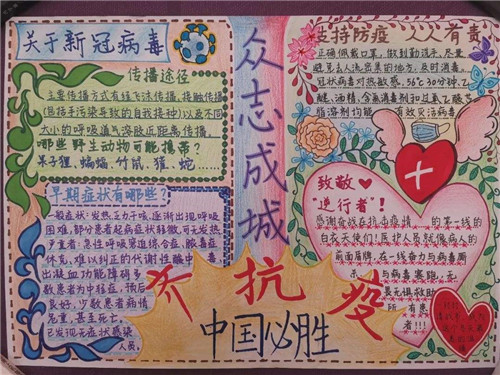 关于新冠病毒
传播途径
主要传播方式有经飞沫传播,接触传播
(包括手污染导致的自我接种)以及不同
大小的呼吸道气溶胶近距离传播.
哪些野生动物可能携带?
果子狸、蝙蝠、竹鼠、獾、蛇……
早期症状有哪些?
一般症状:发热、乏力干咳,逐渐出现呼吸
困难,部分患者起病症状轻微,可无发热
严重者:急性呼吸窘迫综合征、脓毒症
休克、难以纠正的代谢性酸中毒
出凝血功能障碍多
数患者为中轻症,预后
良好,少数患者病情
危重,甚至死亡。
已发现无症状感染
人员。
众志成城
齐抗疫
中国必胜
支持防疫 人人有责
正确佩戴口罩,做到勤洗手、尽量
避免去人流密集的地方,及时消毒
症状病毒对热敏感,56℃30分钟,乙
醚、酒精、含氯消毒剂和过氧乙酸等
脂溶剂均能有效灭活病毒
致敬
"逆行者"!
感谢奋战在抗击疫情的第一线的
白衣天使们!医护人员就像病人的
前面盾牌,在一线奋力与病毒
与病毒赛跑,无
畏无惧救助
所有患
者!!!